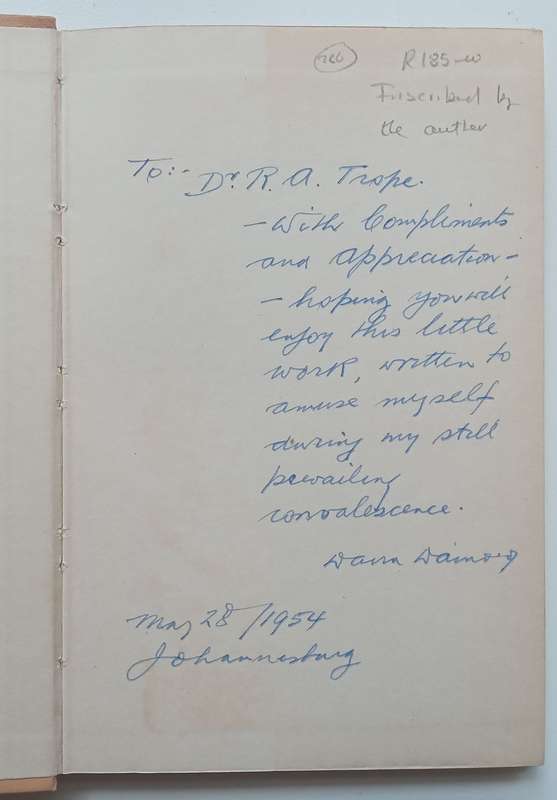 R185-00
Inscribed by
the author
To:- Dr. R. A. Trope.
- With Compliments
and appreciation -
- hoping you will
enjoy this little
work, written to
amuse myself
during my still
prevailing
convalescence.
May 28/1954
Johannesburg